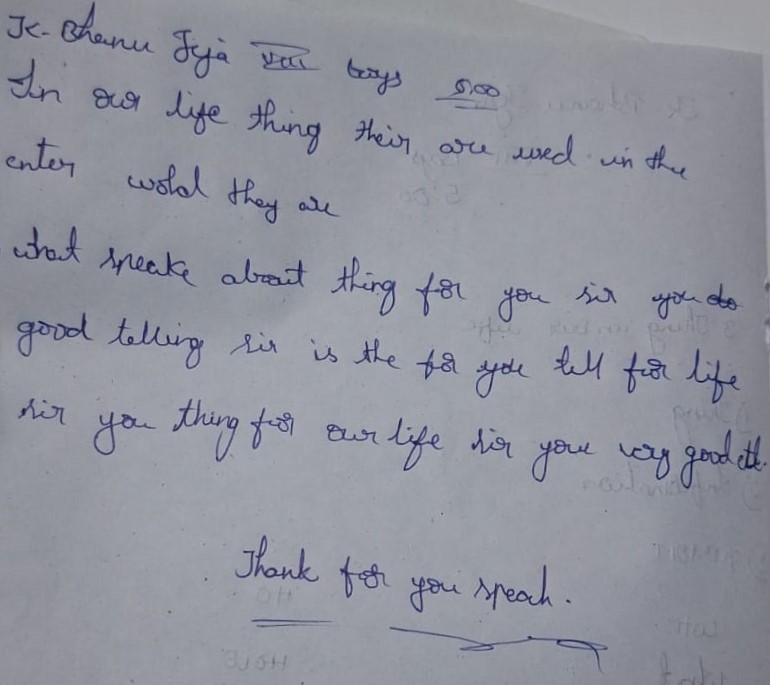 K. Bhanu Teja VIII boys 5:00
In our life thing their are used in the
enter wold they are
what speake about thing for you sir you do
good telling sir is the for you tell for life
sir you thing for our life sir your very good
Thank for you speach.